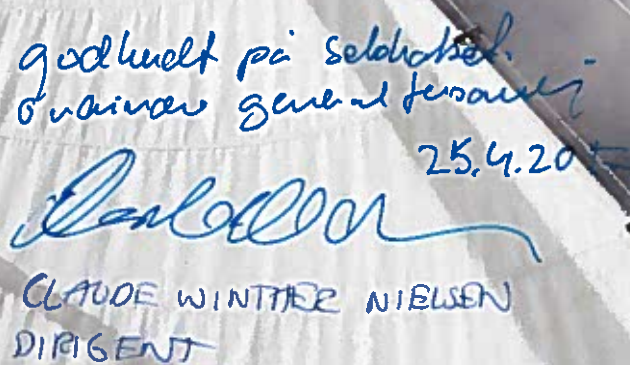 godkendt på Selskabet
ordinære generalforsamling
25.4.20
CLAUDE WINTHER NIELSEN
DIRIGENT